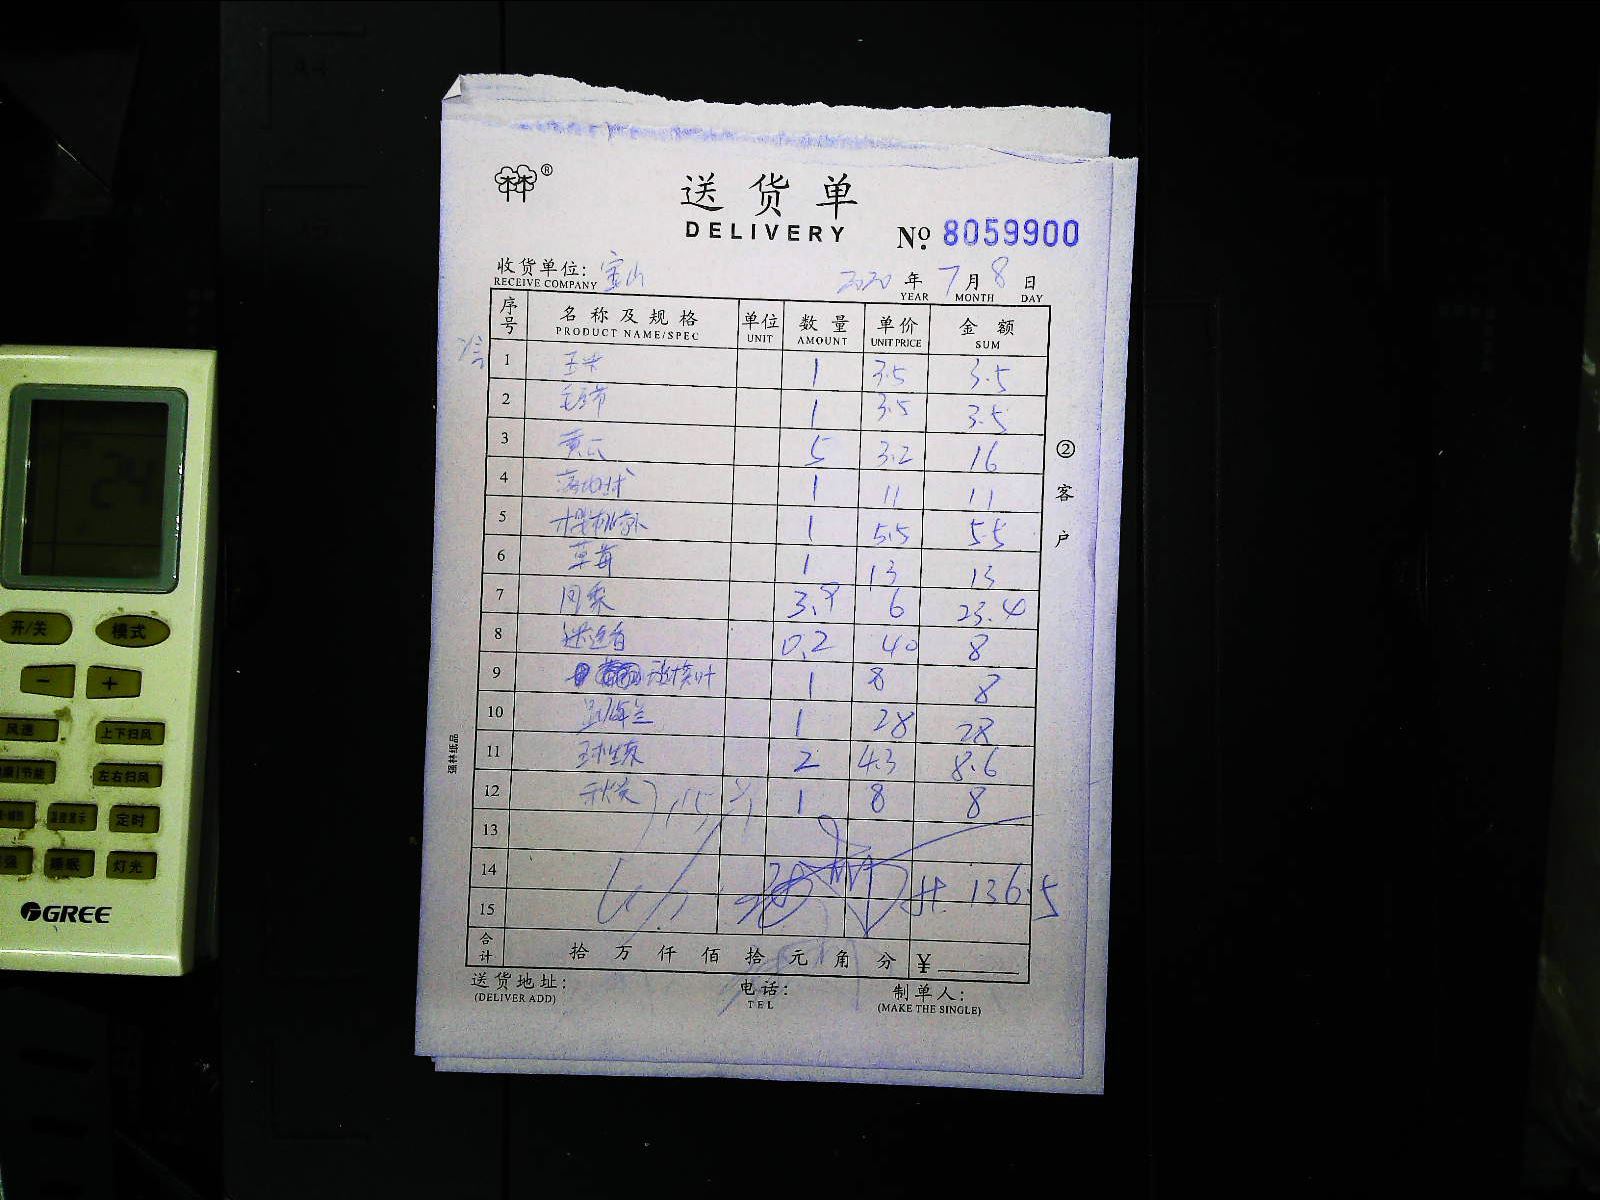 送货单
DELIVERY
No. 8059900
收货单位: 宝山
RECEIVE COMPANY
2020 年 7 月 8 日
YEAR MONTH DAY
序号 名称及规格 单位 数量 单价 金额
PRODUCT NAME/SPEC UNIT AMOUNT UNIT PRICE SUM
1 玉米 1 3.5 3.5
2 1 3.5 3.5
3 黄瓜 5 3.2 16
4 1 11 11
5 1 5.5 5.5
6 草莓 1 13 13
7 3.9 6 23.4
8 迷迭香 0.2 40 8
9 1 8 8
10 1 28 28
11 球生菜 2 4.3 8.6
12 秋葵 1 8 8
13
14
共 136.5
15
合计 拾 万 仟 佰 拾 元 角 分 ¥
送货地址:
(DELIVER ADD)
电话:
TEL
制单人:
(MAKE THE SINGLE)
②客户
强林纸品
24
开/关 模式
- +
风速 上下扫风
节能 左右扫风
定时
睡眠 灯光
GREE